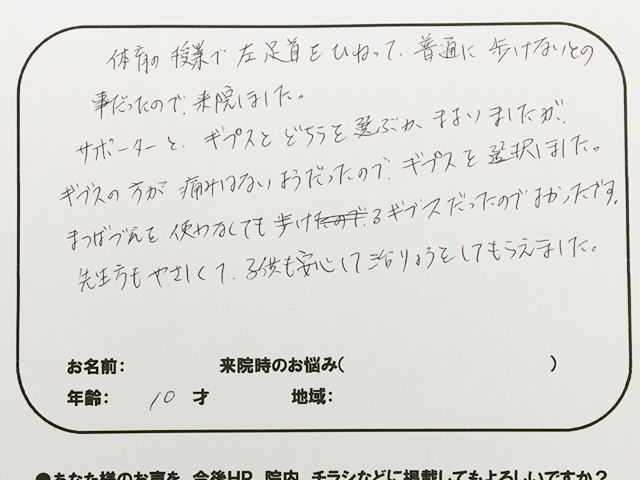 体育の授業で左足首をひねって、普通に歩けないとの
事だったので、来院しました。
サポーターと、ギプスとどちらを選ぶか、まよいましたが、
ギプスの方が痛みはないようだったので、ギプスを選択しました。
まつばづえを使わなくても歩けるギプスだったのでよかったです。
先生方もやさしくて、子供も安心して治りょうをしてもらえました。
お名前: 来院時のお悩み( )
年齢: 10 才 地域:
●あなた様のお声を、今後HP、院内、チラシなどに掲載してもよろしいですか?